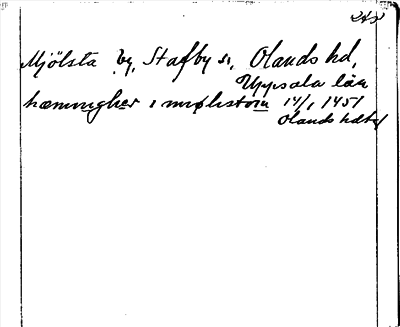 Mjölsta by, Stafby sn, Olands hd,
Uppsala län
hæmingher i miølistom 14/1 1451
Olands hdbr